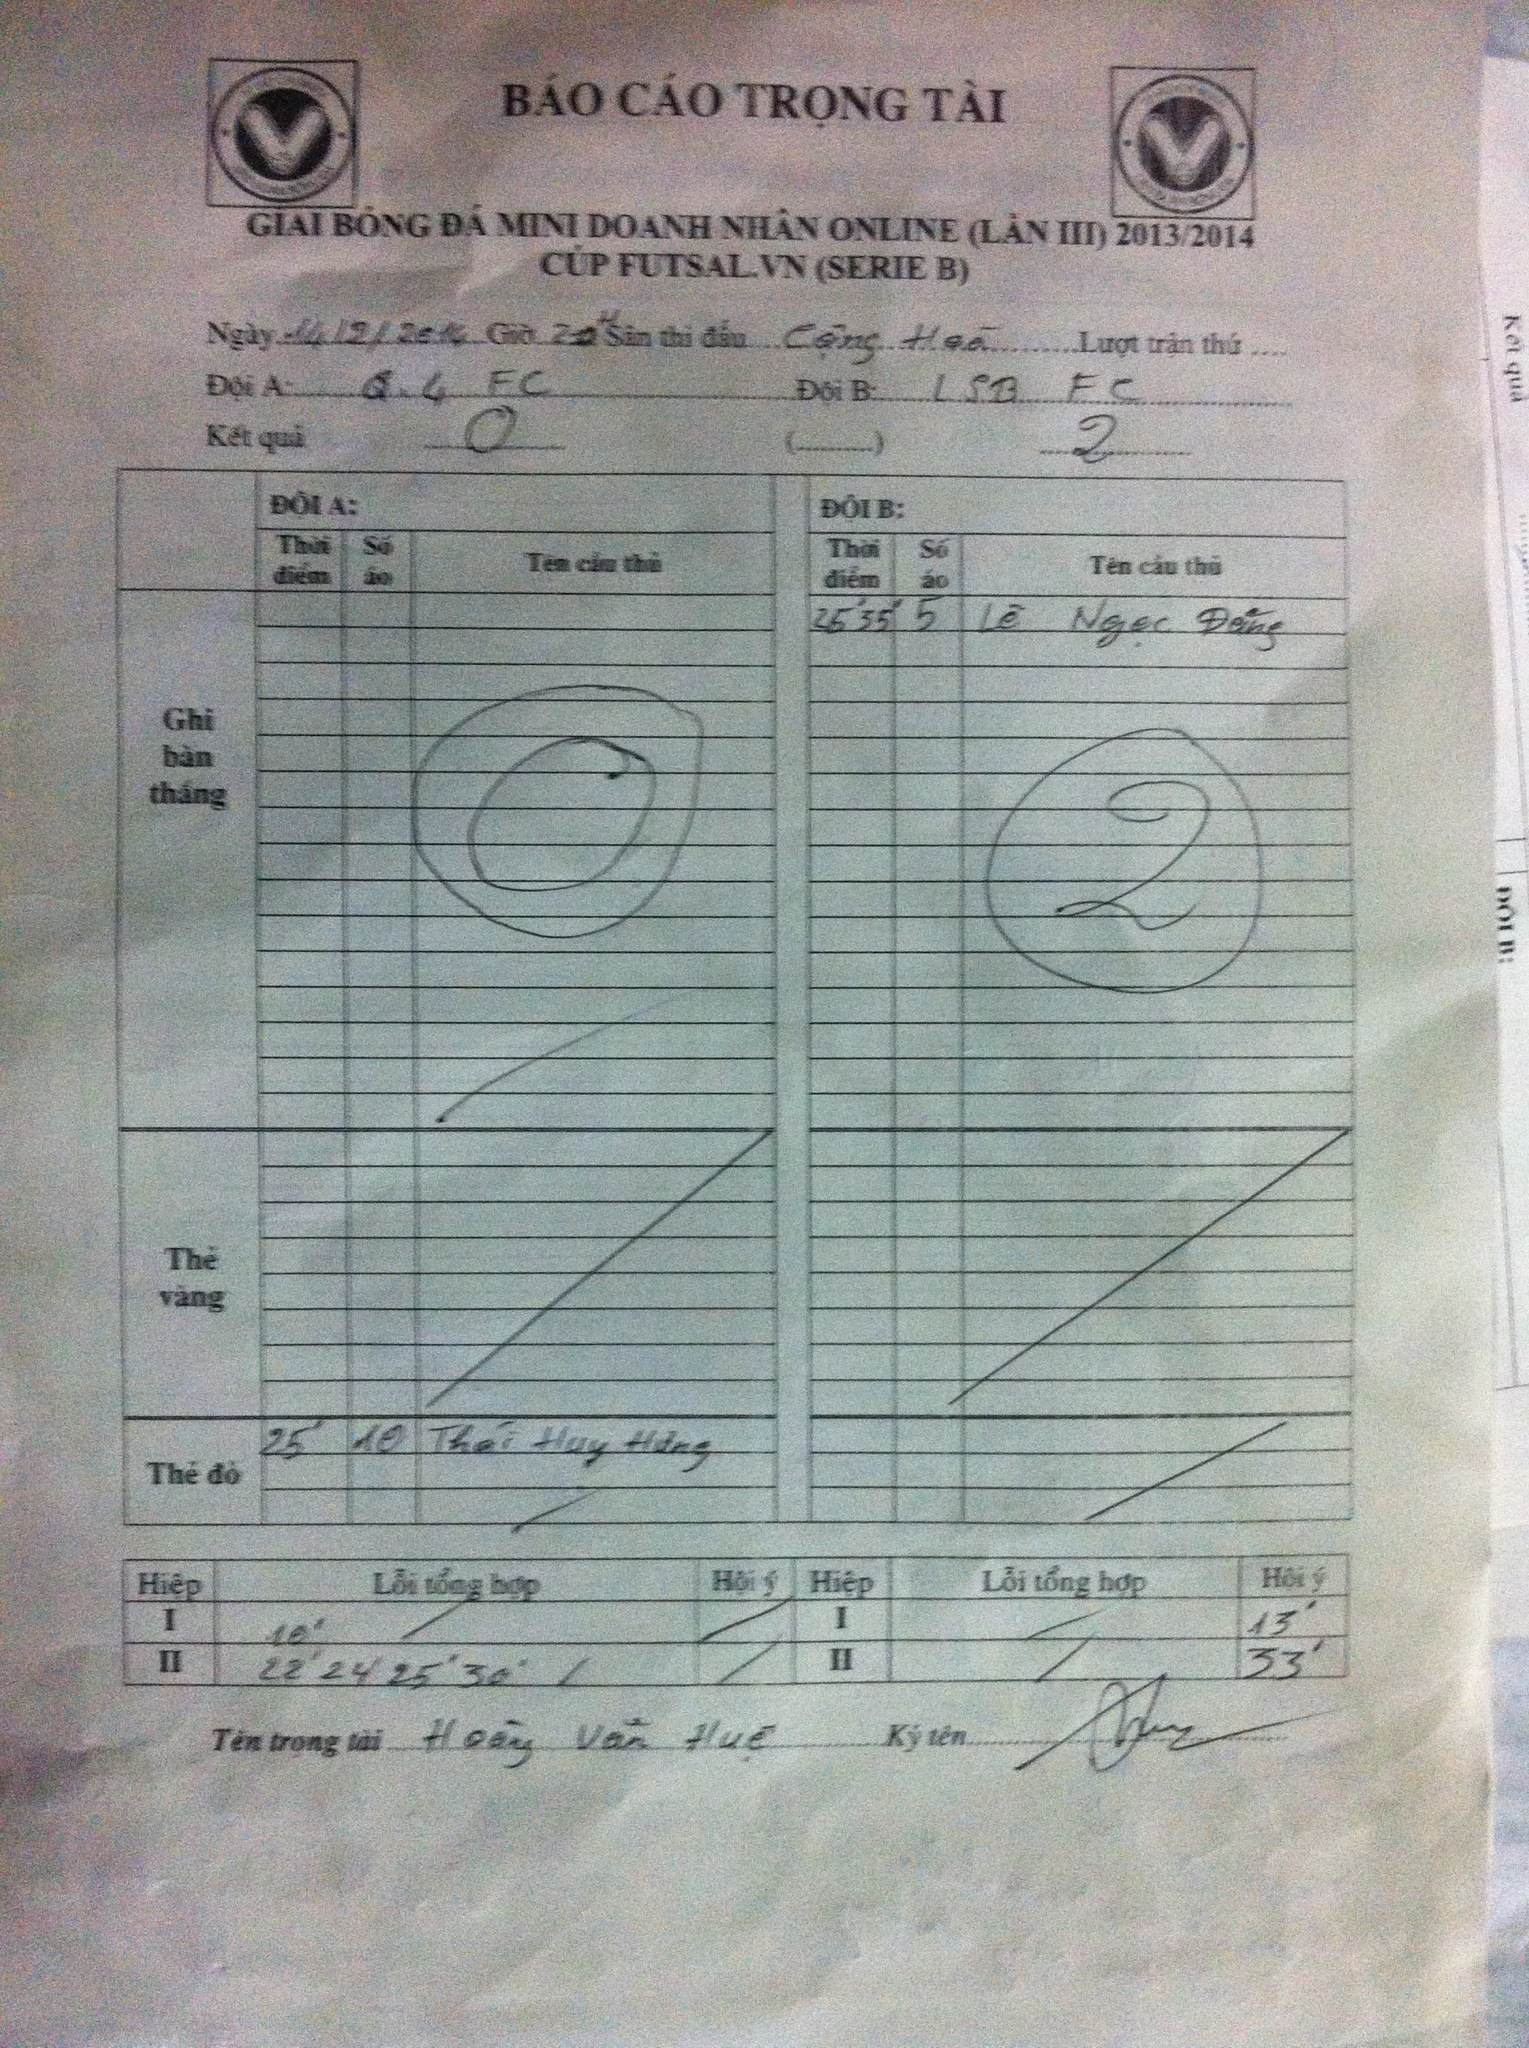 BÁO CÁO TRỌNG TÀI
GIẢI BÓNG ĐÁ MINI DOANH NHÂN ONLINE (LẦN III) 2013/2014
CÚP FUTSAL.VN (SERIE B)
Ngày 14/2/2014 Giờ 20H Sân thi đấu Cộng Hoà Lượt trận thứ ....
Đội A: Q.4 FC Đội B: LSB FC
Kết quả 0 (............) 2
ĐỘI A: ĐỘI B:
Thời điểm Số áo Tên cầu thủ Thời điểm Số áo Tên cầu thủ
Ghi bàn thắng 25' 35' 5 Lê Ngọc Đẳng
0 2
Thẻ vàng
Thẻ đỏ 25' 10 Thái Huy Hưng
Hiệp Lỗi tổng hợp Hội ý Hiệp Lỗi tổng hợp Hội ý
I 10' I 13'
II 22' 24' 25' 30' II 33'
Tên trọng tài Hoàng Văn Huệ Ký tên
Kết quả
ĐỘI B: